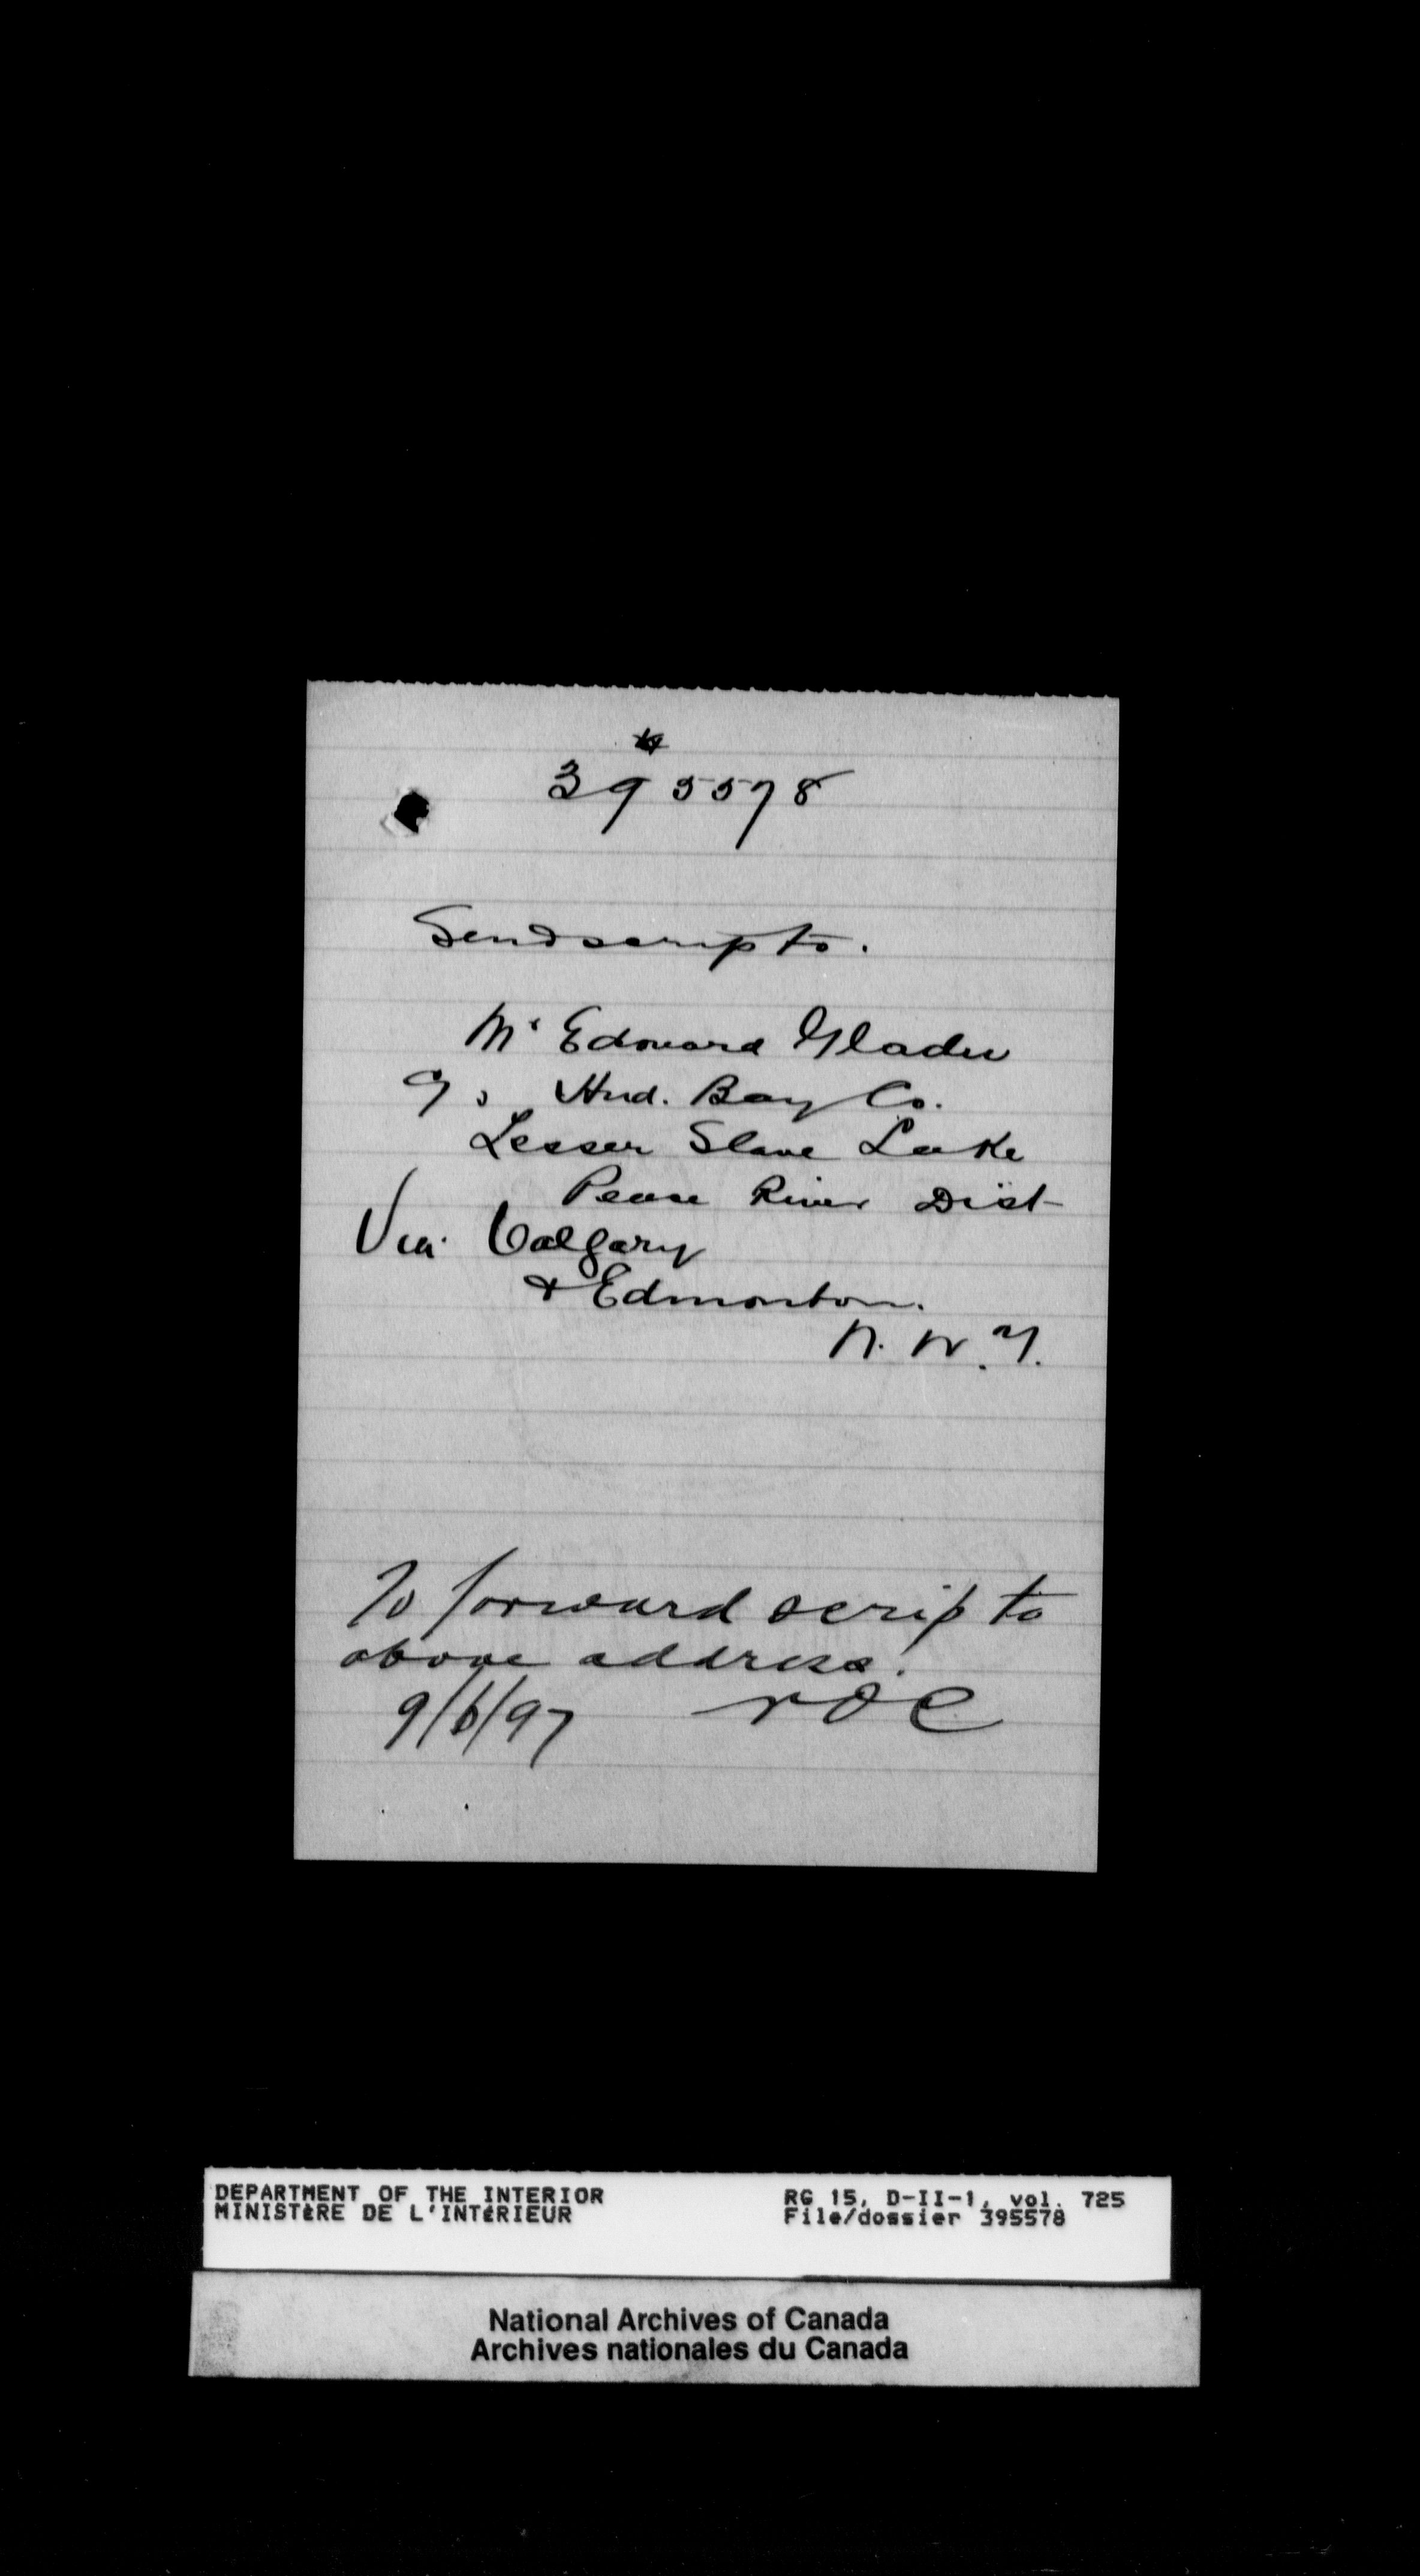 395578
Send scrip to.
Mr Edouard Gladu
c/o Hud. Bay Co.
Lesser Slave Lake
Peace River Dist
Via Calgary
& Edmonton.
N. W. T.
To forward scrip to
above address.
9/6/97
DEPARTMENT OF THE INTERIOR
MINISTèRE DE L'INTéRIEUR
RG 15, D-II-1, vol. 725
File/dossier 395578
National Archives of Canada
Archives nationales du Canada